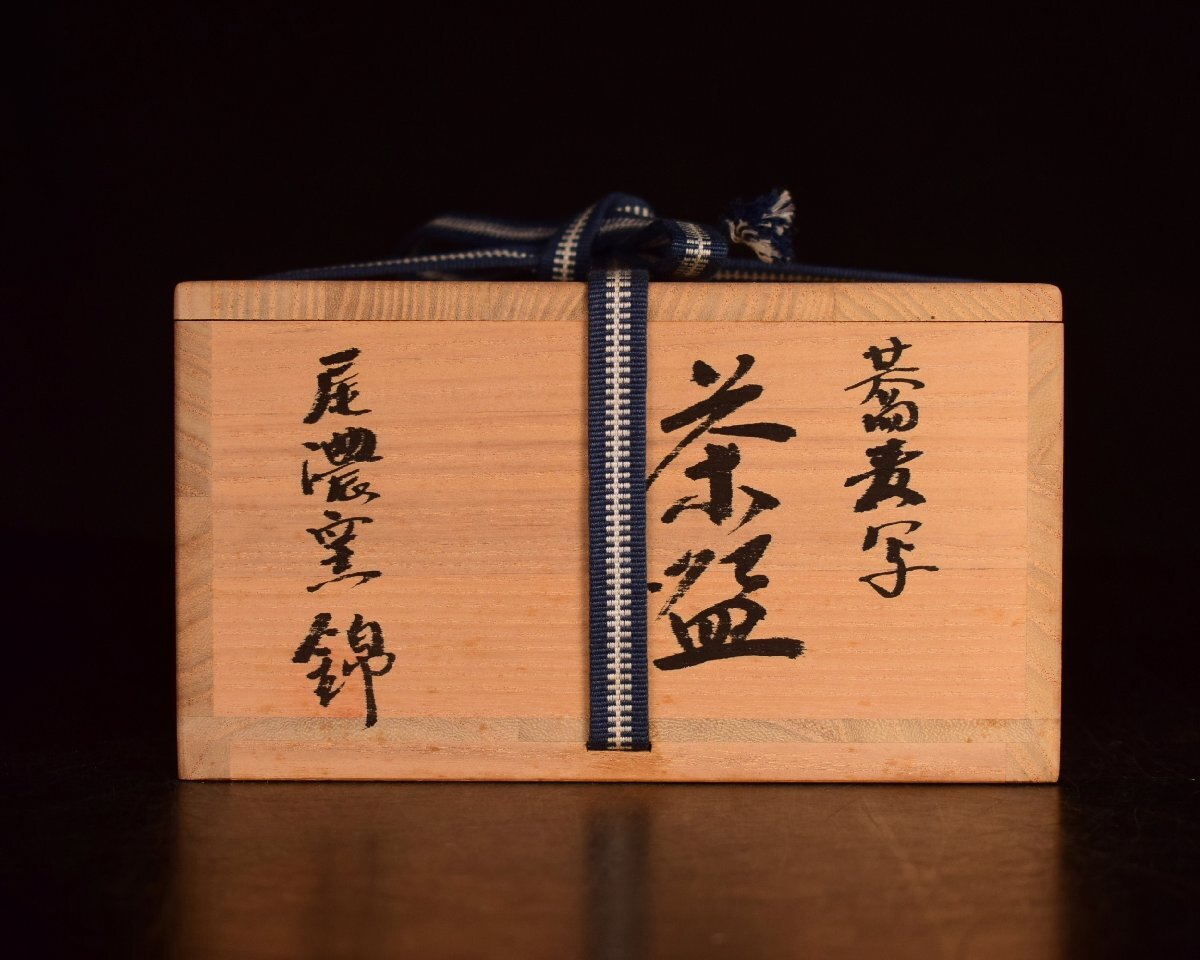 蕎麦写
茶盌
尾濃窯 錦